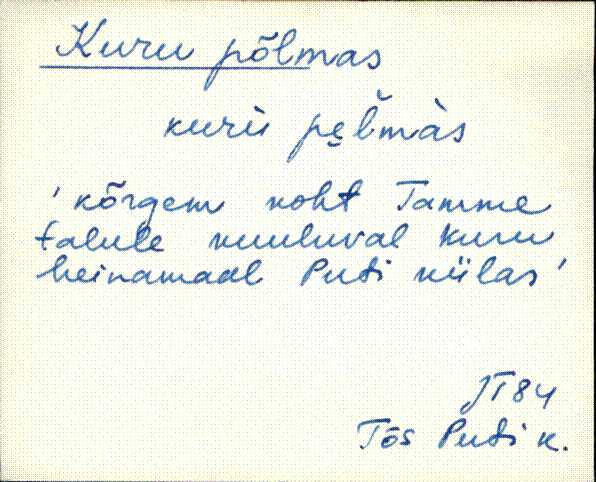 Kuru põlmas
kuru pe̮l̆màs
'kõrgem koht Tamme
talule kuuluval Kuru
heinamaal Pudi külas'
JT84
Tõs Pudi k.